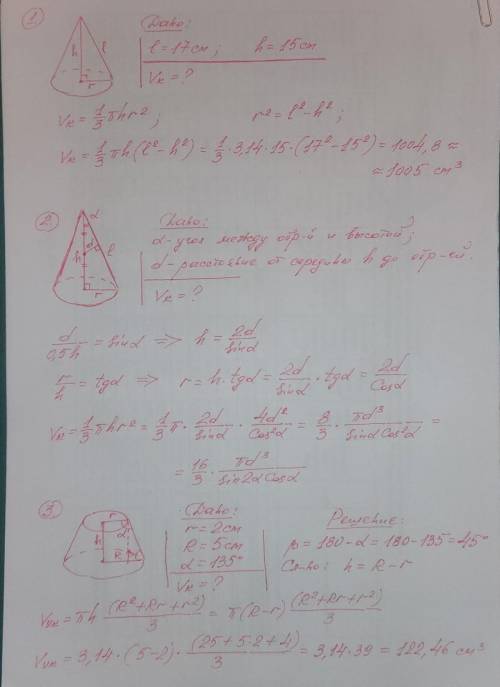 1
h l r
Дано:
l = 17 см; h = 15 см
Vк = ?
Vк = 1/3 πhr²; r² = l² - h²;
Vк = 1/3 πh(l² - h²) = 1/3 · 3,14 · 15 · (17² - 15²) = 1004,8 ≈
≈ 1005 см³
2
α d h l r
Дано:
α - угол между обр-й и высотой;
d - расстояние от середины h до обр-ей.
Vк = ?
d/0,5h = sinα => h = 2d/sinα
r/h = tgα => r = h · tgα = 2d/sinα · tgα = 2d/cosα
Vк = 1/3 πhr² = 1/3 π · 2d/sinα · 4d²/cos²α = 8/3 · πd³/sinα cos²α =
= 16/3 · πd³/sin2α cosα
3
r α h R
Дано:
r = 2 см
R = 5 см
α = 135°
Vк = ?
Решение:
β = 180 - α = 180 - 135 = 45°
h = R - r
Vук = πh (R² + Rr + r²)/3 = π(R - r) (R² + Rr + r²)/3
Vук = 3,14 · (5 - 2) · (25 + 5·2 + 4)/3 = 3,14 · 39 = 122,46 см³